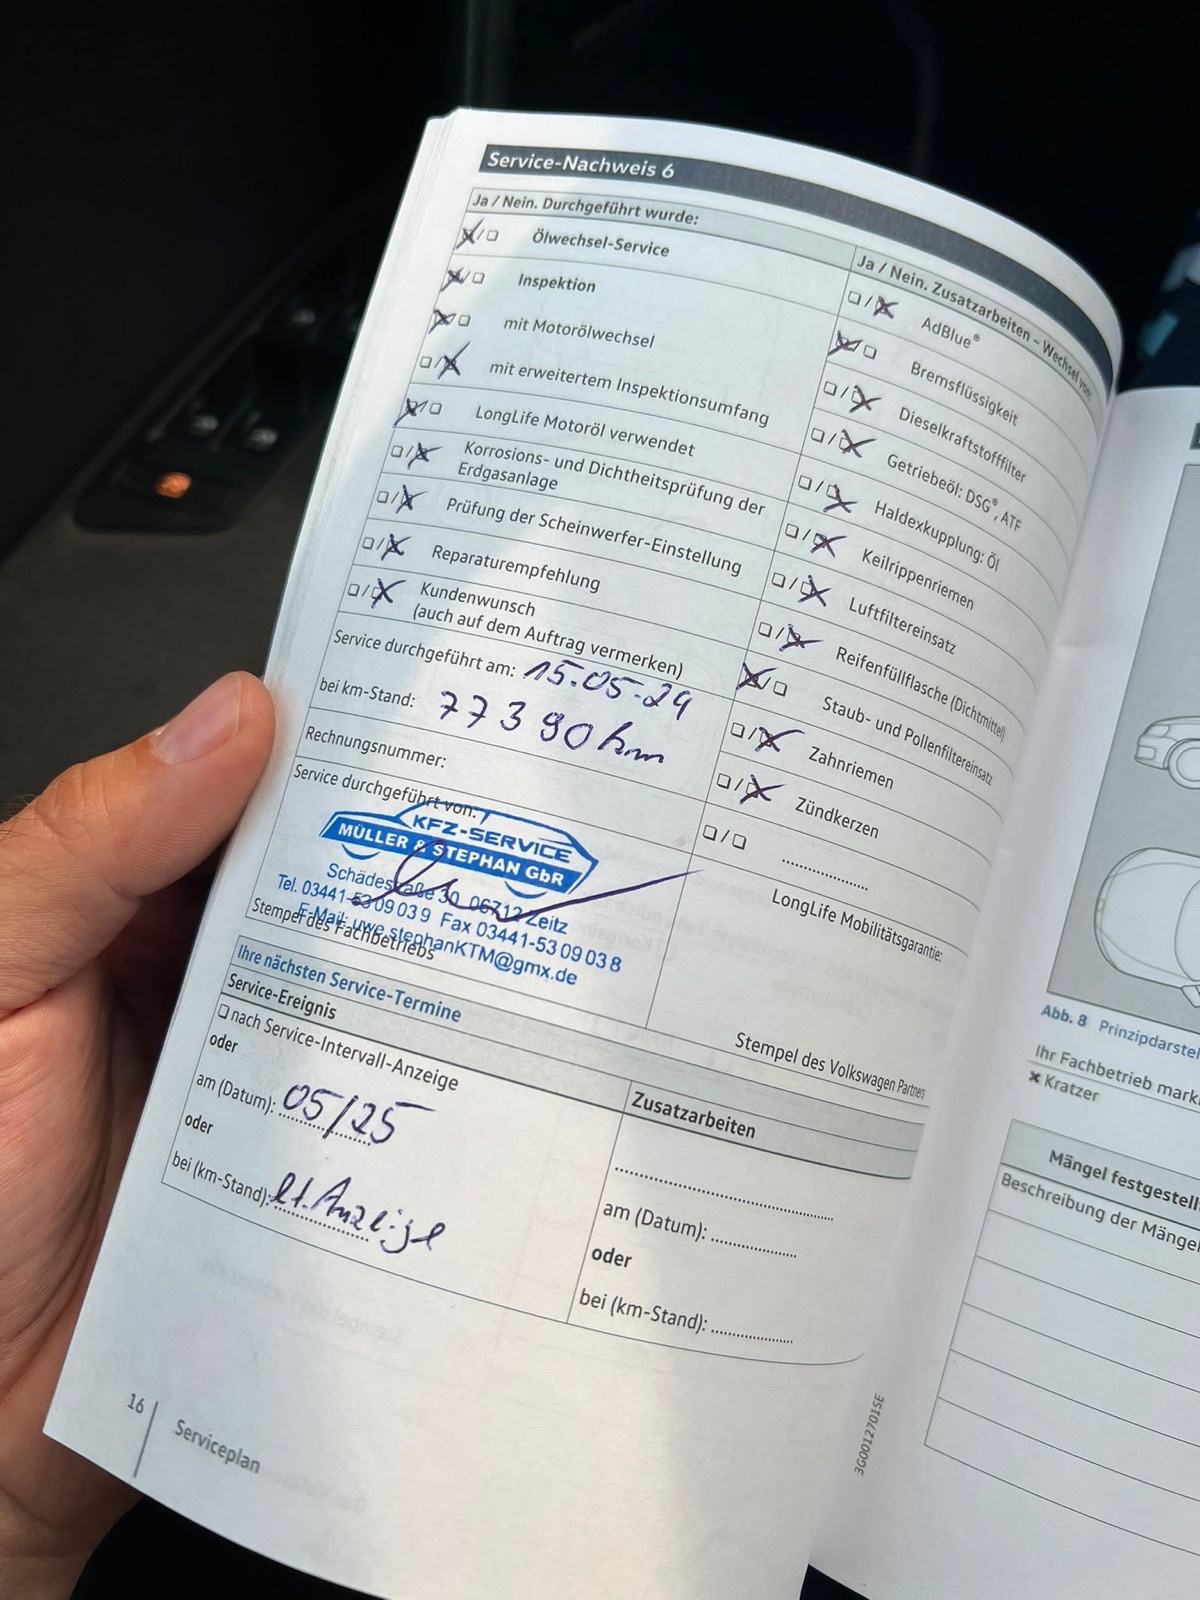 Service-Nachweis 6
Ja / Nein. Durchgeführt wurde:
Ölwechsel-Service
Inspektion
mit Motorölwechsel
mit erweitertem Inspektionsumfang
LongLife Motoröl verwendet
Korrosions- und Dichtheitsprüfung der
Erdgasanlage
Prüfung der Scheinwerfer-Einstellung
Reparaturempfehlung
Kundenwunsch
(auch auf dem Auftrag vermerken)
Service durchgeführt am: 15.05.24
bei km-Stand: 77390 km
Rechnungsnummer:
Service durchgeführt von:
KFZ-SERVICE
MÜLLER & STEPHAN GbR
Schädestraße 30 06712 Zeitz
Tel. 03441-53 09 03 9 Fax 03441-53 09 03 8
E-Mail: uwe.stephanKTM@gmx.de
Stempel des Fachbetriebs
Ja / Nein. Zusatzarbeiten – Wechsel von:
AdBlue®
Bremsflüssigkeit
Dieselkraftstofffilter
Getriebeöl: DSG®, ATF
Haldexkupplung: Öl
Keilrippenriemen
Luftfiltereinsatz
Reifenfüllflasche (Dichtmittel)
Staub- und Pollenfiltereinsatz
Zahnriemen
Zündkerzen
LongLife Mobilitätsgarantie:
Stempel des Volkswagen Partners
Ihre nächsten Service-Termine
Service-Ereignis
nach Service-Intervall-Anzeige
oder
am (Datum): 05/25
oder
bei (km-Stand): lt. Anzeige
Zusatzarbeiten
am (Datum):
oder
bei (km-Stand):
16
Serviceplan
3G0012701SE
Abb. 8 Prinzipdarstel
Ihr Fachbetrieb mark
Kratzer
Mängel festgestell
Beschreibung der Mängel